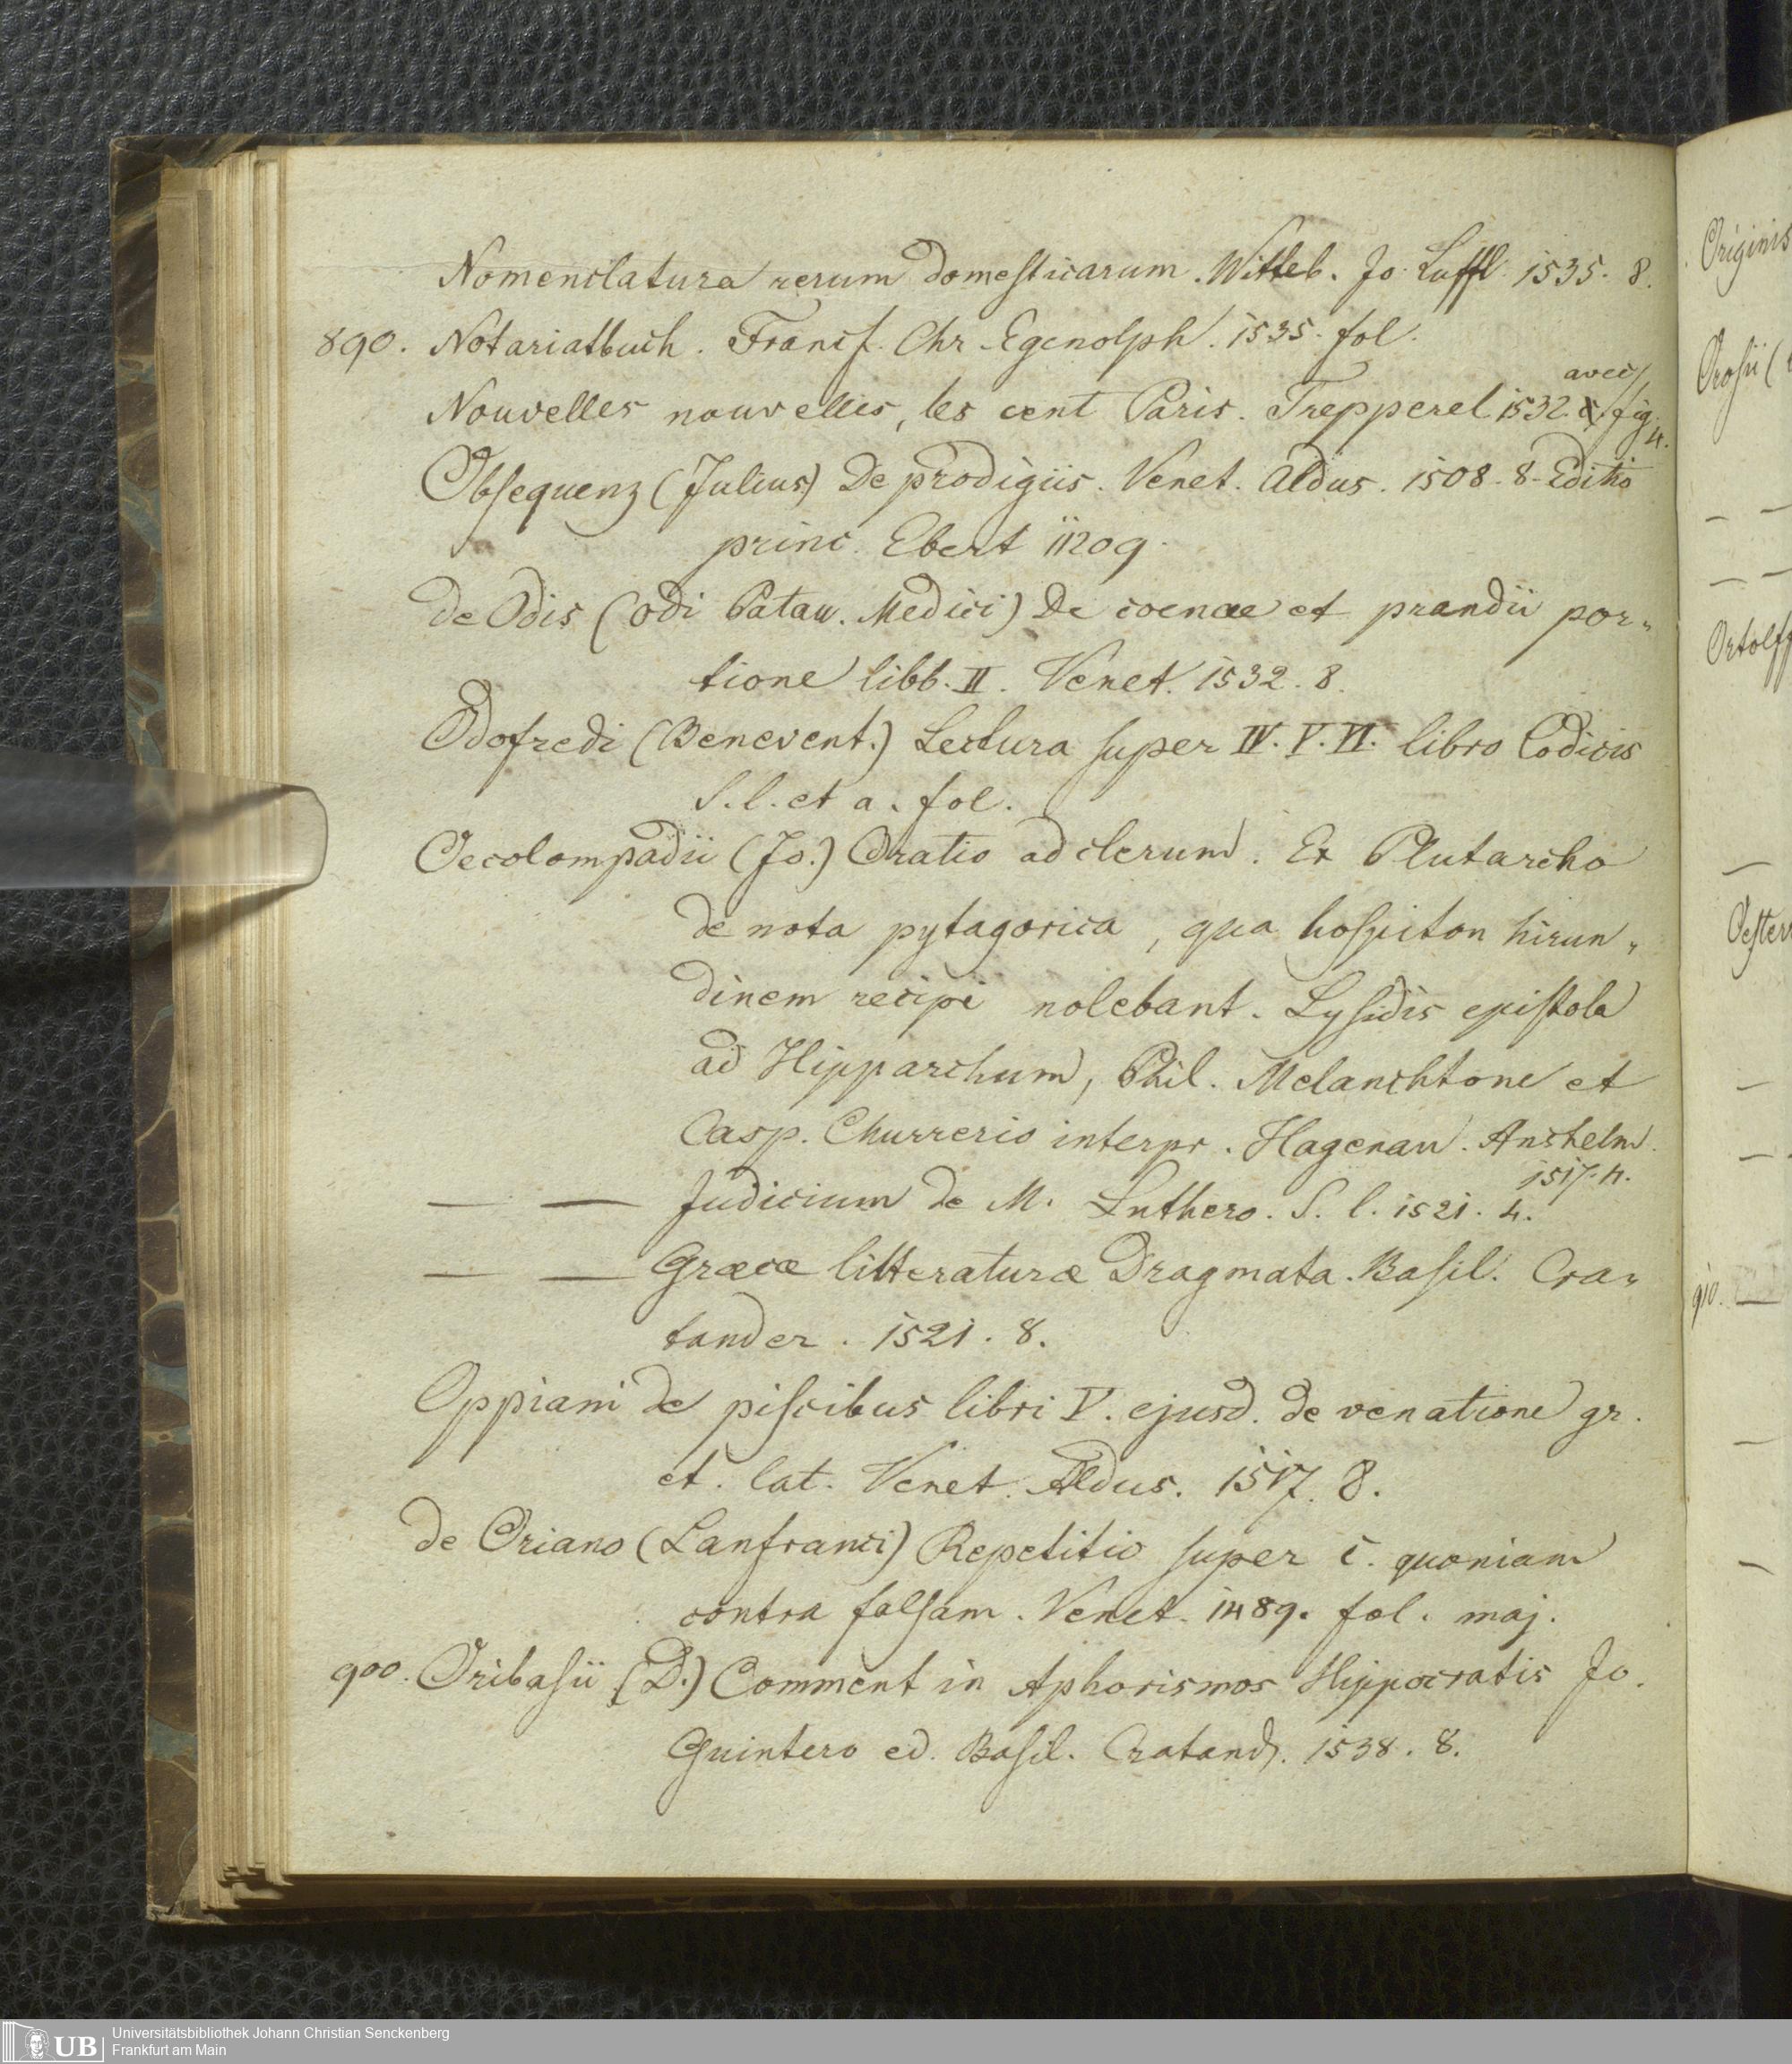 Nomenclatura rerum domesticarum. Witteb. Jo. Lufft. 1535. 8.
890. Notariatbuch. Francf. Chr. Egenolph. 1535. fol.
avec
Nouvelles nouvelles, les cent Paris. Trepperel 1532. fig.
4.
Obsequenz (Julius) De prodigiis. Venet. Aldus. 1508. 8. Editio
princ. Ebert 11209.
de Odis (odi Patau. Medici) De coenae et prandii por„
tione libb. II. Venet. 1532. 8.
Odofredi (Benevent.) Lectura super IV. V. VI. libro Codicis
S. l. et a. fol.
Oecolompadii (Jo.) Oratio ad clerum. Ex Plutarcho
de nota pytagorica, qua hospiton hirun„
dinem recipi nolebant. Lysidis epistola
ad Hipparchum, Phil. Melanchtone et
Casp. Churrerio interpr. Hagenau. Anshelm.
1517. 4.
— — Judicium de M. Luthero. S. l. 1521. 4.
— — Graecæ litteraturæ Dragmata. Basil. Cra„
tander. 1521. 8.
Oppiani de piscibus libri V. ejusd. de venatione gr.
et. lat. Venet. Aldus. 1517. 8.
de Oriano (Lanfranci) Repetitio super c. quoniam
contra falsam. Venet. 1489. fol. maj.
900. Oribasii (D.) Comment in Aphorismos Hippocratis Jo.
Guintero ed. Basil. Cratand. 1538. 8.
Originis
Orosii (
Ortolff
Oester
910. —
UB
Universitätsbibliothek Johann Christian Senckenberg
Frankfurt am Main